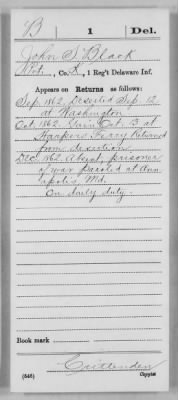 B | 1 | Del.
John S. Black
Pvt., Co. K, 1 Reg't Delaware Inf.
Appears on Returns as follows:
Sep. 1862, Deserted Sep. 12
at Washington
Oct. 1862. Gain Oct. 3 at
Harpers Ferry Returned
from desertion
Dec. 1862, Absent, prisoner
of war paroled at Ann-
apolis, Md.
On daily duty.
Book mark
Crittenden
(546) Copyist